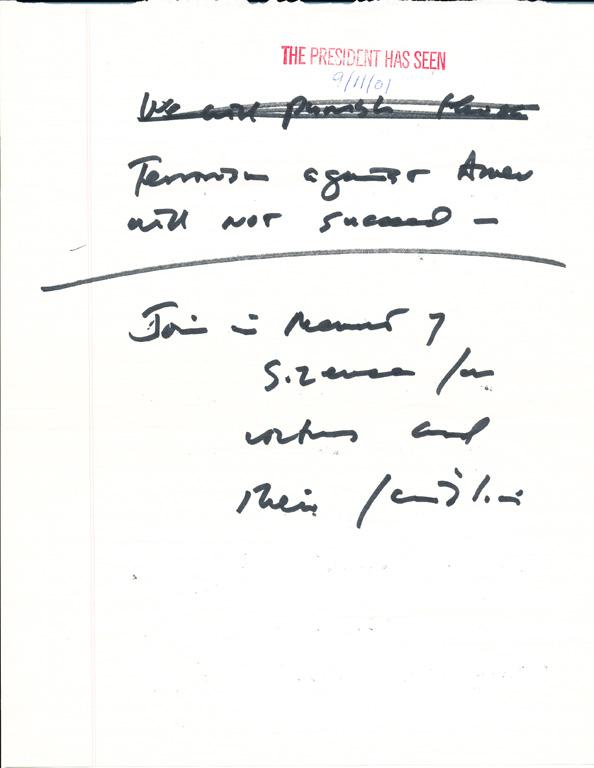 THE PRESIDENT HAS SEEN
9/11/01
We will punish those
Terrorism against Amer
will not succeed -
Join in moment of
Silence for
victims and
their families